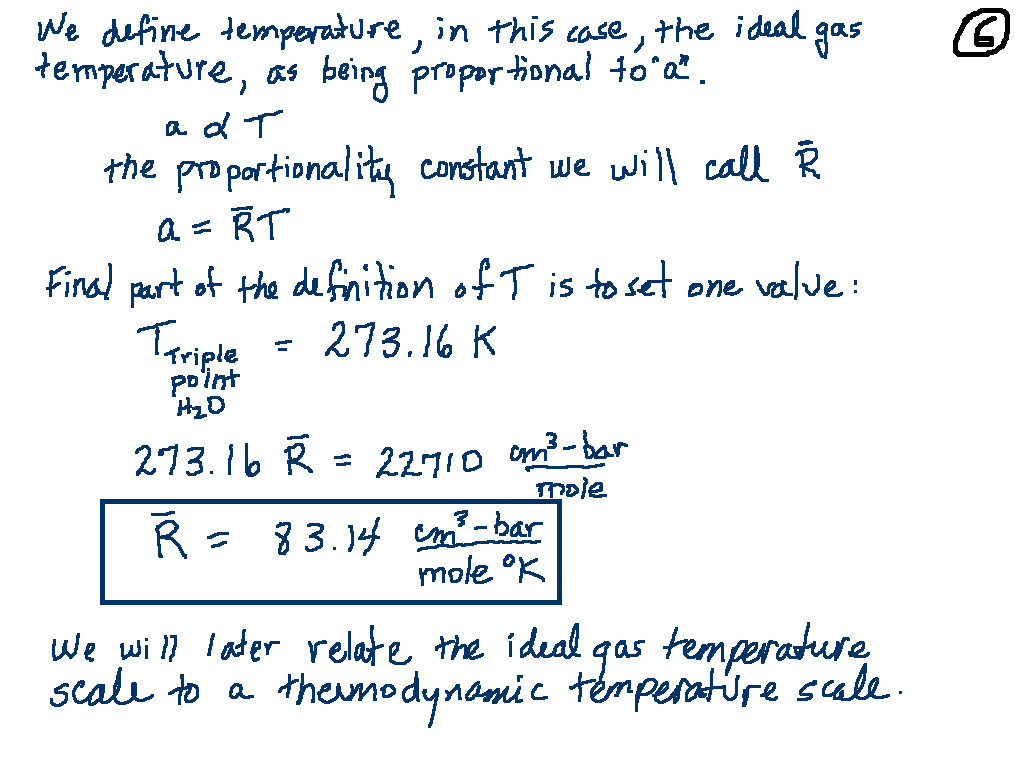 We define temperature, in this case, the ideal gas
6
temperature, as being proportional to "a".
a α T
the proportionality constant we will call R̄
a = R̄T
Final part of the definition of T is to set one value:
T = 273.16 K
Triple
point
H₂O
273.16 R̄ = 22710 cm³-bar
mole
R̄ = 83.14 cm³-bar
mole °K
We will later relate the ideal gas temperature
scale to a thermodynamic temperature scale.